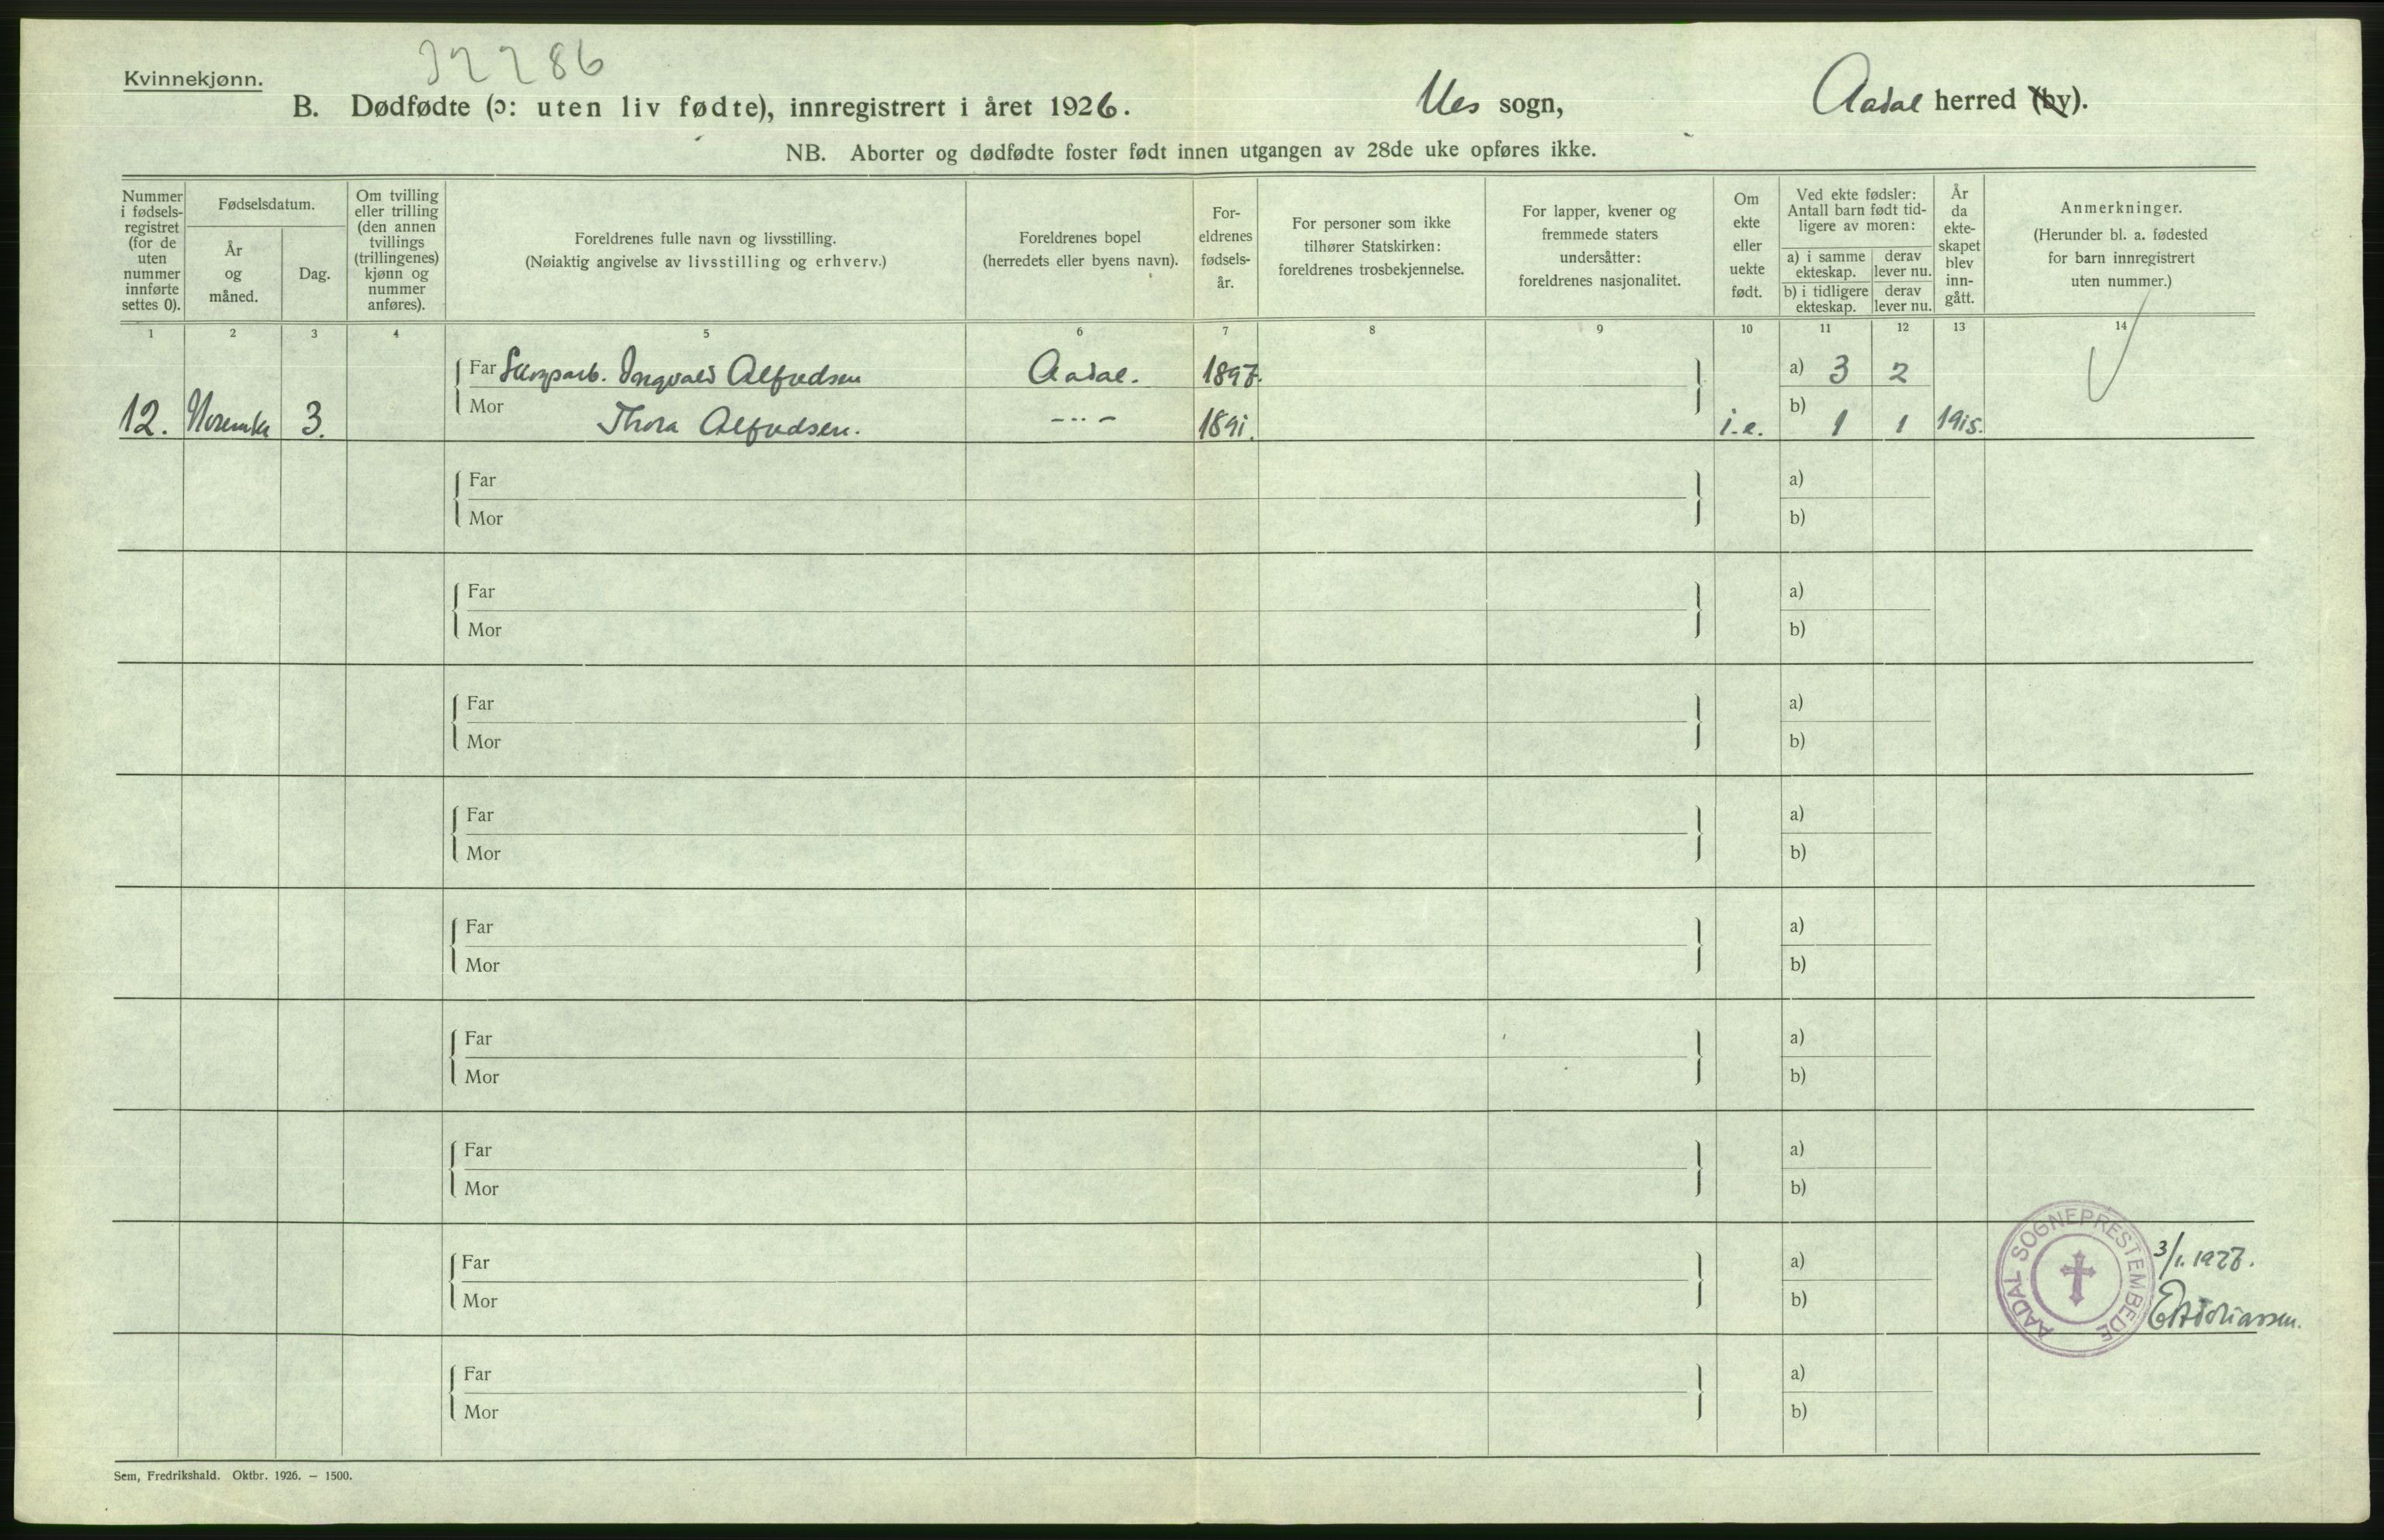 Kvinnekjønn.
B. Dødfødte (ɔ: uten liv fødte), innregistrert i året 1926. sogn, Aadal herred (by).
NB. Aborter og dødfødte foster født innen utgangen av 28de uke opføres ikke.
Nummer i fødsels-registret (for de uten nummer innførte settes 0).
Fødselsdatum.
År og måned.
Dag.
Om tvilling eller trilling (den annen tvillings (trillingenes) kjønn og nummer anføres).
Foreldrenes fulle navn og livsstilling.
(Nøiaktig angivelse av livsstilling og erhverv.)
Foreldrenes bopel
(herredets eller byens navn).
For-eldrenes fødsels-år.
For personer som ikke tilhører Statskirken: foreldrenes trosbekjennelse.
For lapper, kvener og fremmede staters undersåtter: foreldrenes nasjonalitet.
Om ekte eller uekte født.
Ved ekte fødsler: Antall barn født tid-ligere av moren:
a) i samme ekteskap.
derav lever nu.
b) i tidligere ekteskap.
derav lever nu.
År da ekte-skapet blev inn-gått.
Anmerkninger.
(Herunder bl. a. fødested for barn innregistrert uten nummer.)
1 2 3 4 5 6 7 8 9 10 11 12 13 14
Far Skogsarb. Ingvald Alfredsen Aadal. 1897. a) 3 2
12. 3. Mor Thora Alfredsen. 1891. b) 1 1 1915.
Far a)
Mor b)
Far a)
Mor b)
Far a)
Mor b)
Far a)
Mor b)
Far a)
Mor b)
Far a)
Mor b)
Far a)
Mor b)
Far a)
Mor b)
Far a)
Mor b)
AADAL SOGNEPRESTEMBEDE
3/1. 1927.
Sem, Fredrikshald. Oktbr. 1926. – 1500.